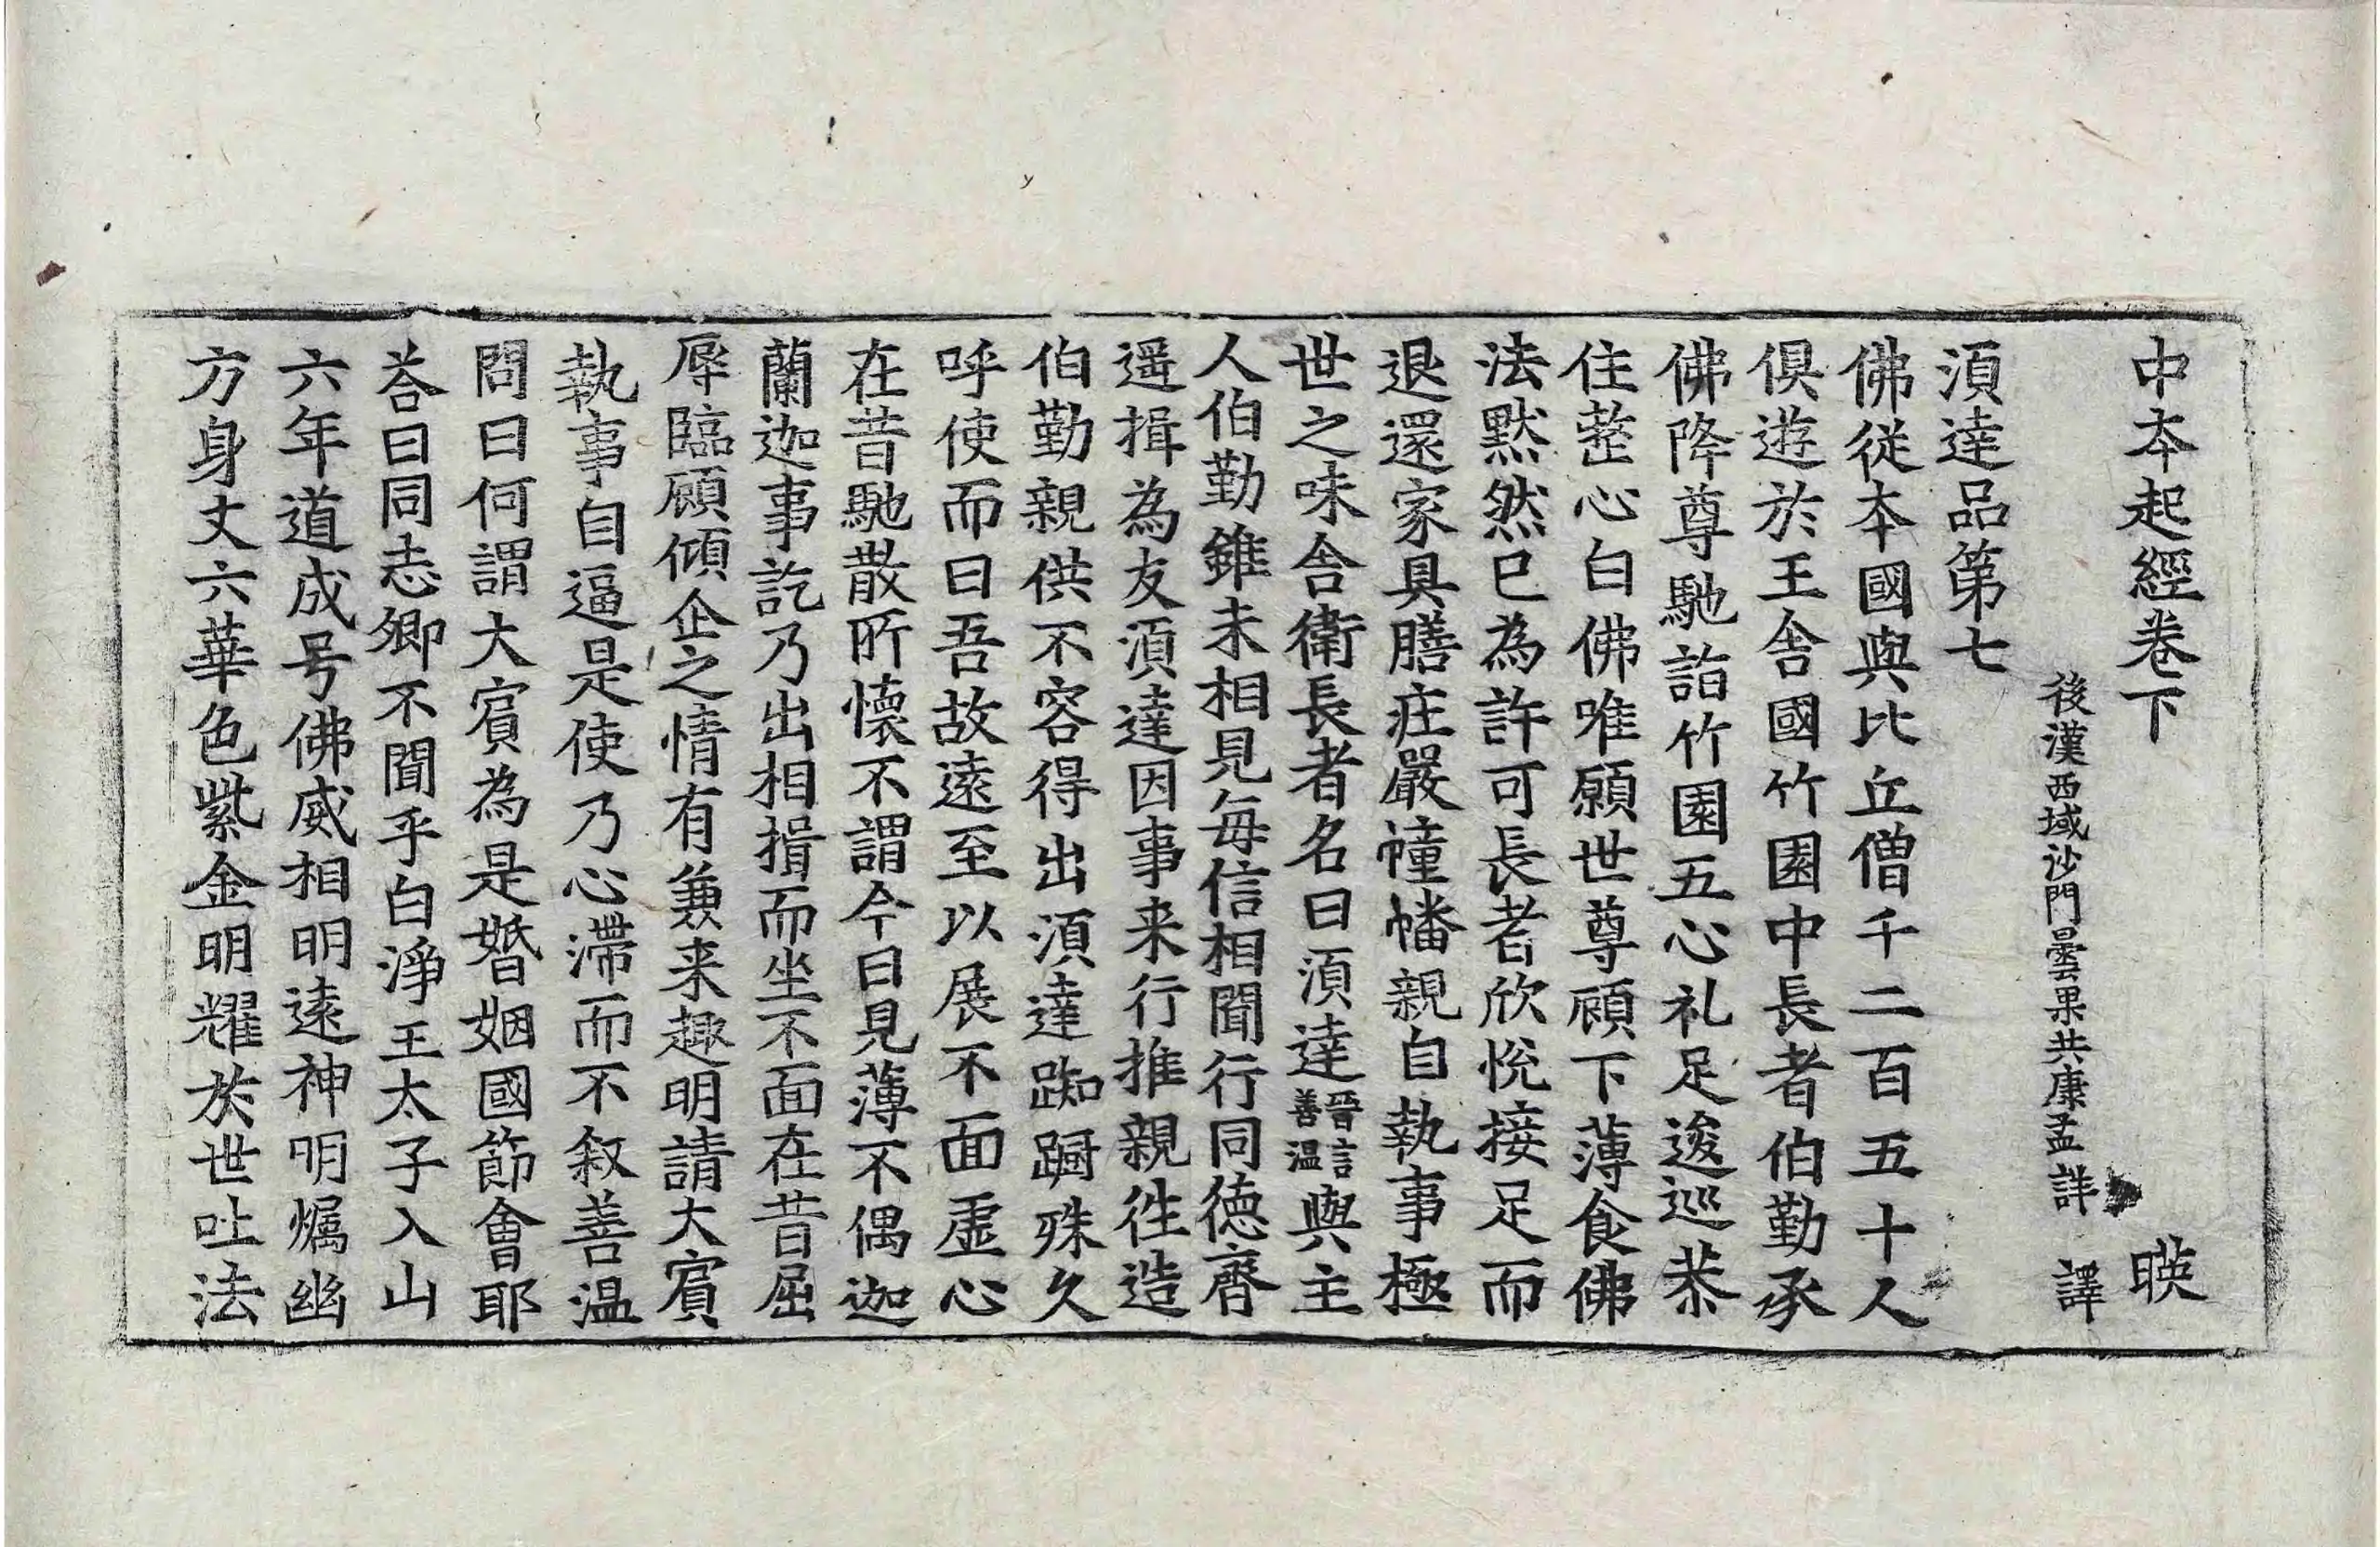 中本起經卷下 暎
後漢西域沙門曇果共康孟詳 譯
湏達品第七
佛從本國與比丘僧千二百五十人
俱遊於王舍國竹園中長者伯勤承
佛降尊馳詣竹園五心礼足逡巡恭
住整心白佛唯願世尊顧下薄食佛
法默然已為許可長者欣悅接足而
退還家具膳莊嚴幢幡親自執事極
世之味舍衛長者名曰湏達晉言善温與主
人伯勤雖未相見每信相聞行同德齊
遥揖為友湏達因事来行推親往造
伯勤親供不容得出湏達踟蹰殊久
呼使而曰吾故遠至以展不面虛心
在昔馳散所懷不謂今日見薄不偶迦
蘭迦事訖乃出相揖而坐不面在昔屈
辱臨顧傾企之情有兼来趣明請大賓
執事自逼是使乃心滯而不叙善温
問曰何謂大賓為是婚姻國節會耶
荅曰同志卿不聞乎白淨王太子入山
六年道成号佛威相明遠神明燭幽
方身丈六華色紫金明耀於世吐法